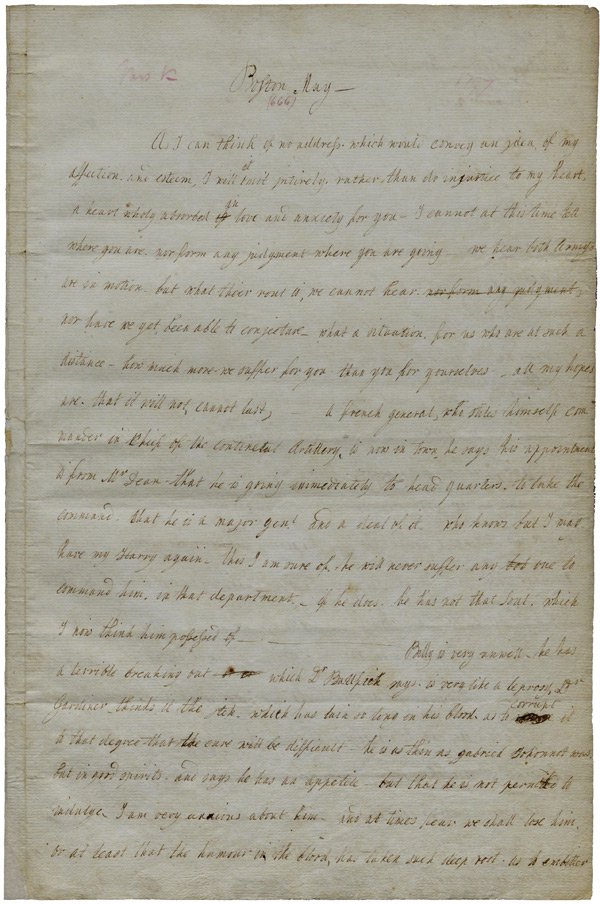 Boston May —
(666)
As I can think of no address which would convey an idea of my
affection, and esteem, I will omit intirely rather than do injustice to my heart,
a heart wholy absorbed in love and anxiety for you — I cannot at this time tell
where you are nor form any judgment where you are going — we hear both Armys
are in motion but what their rout is, we cannot hear nor form any judgment,
nor have we yet, been able to conjecture — what a situation, for us who are at such a
distance — how much more we suffer for you than you for yourselves — all my hopes
are that it will not, cannot last, a french general, who stiles himself com
mander in Chief of the continetal Artillery, is now in town, he says his appointment
is from Mr Dean — that he is going immediately to head quarters, to take the
command. that he is a major genl and a deal of it. who knows but I may
have my Harry again — this I am sure of he will never suffer any one to
command him, in that department — if he does he has not that soul, which
I now think him possesed of —
Billy is very unwell — he has
a terrible breaking out which Dr says is very like a leprosy, Dr
Gardiner thinks it the itch which has lain so long on his blood as to corrupt it
to that degree that the cure will be difficult — he is as thin as gabriel now
but in good spirits and says he has an appetite — but that he is not to
indulge. I am very anxious about him — and at times fear we shall lose him,
or at least that the humour in the blood, has taken such deep root as to embitter